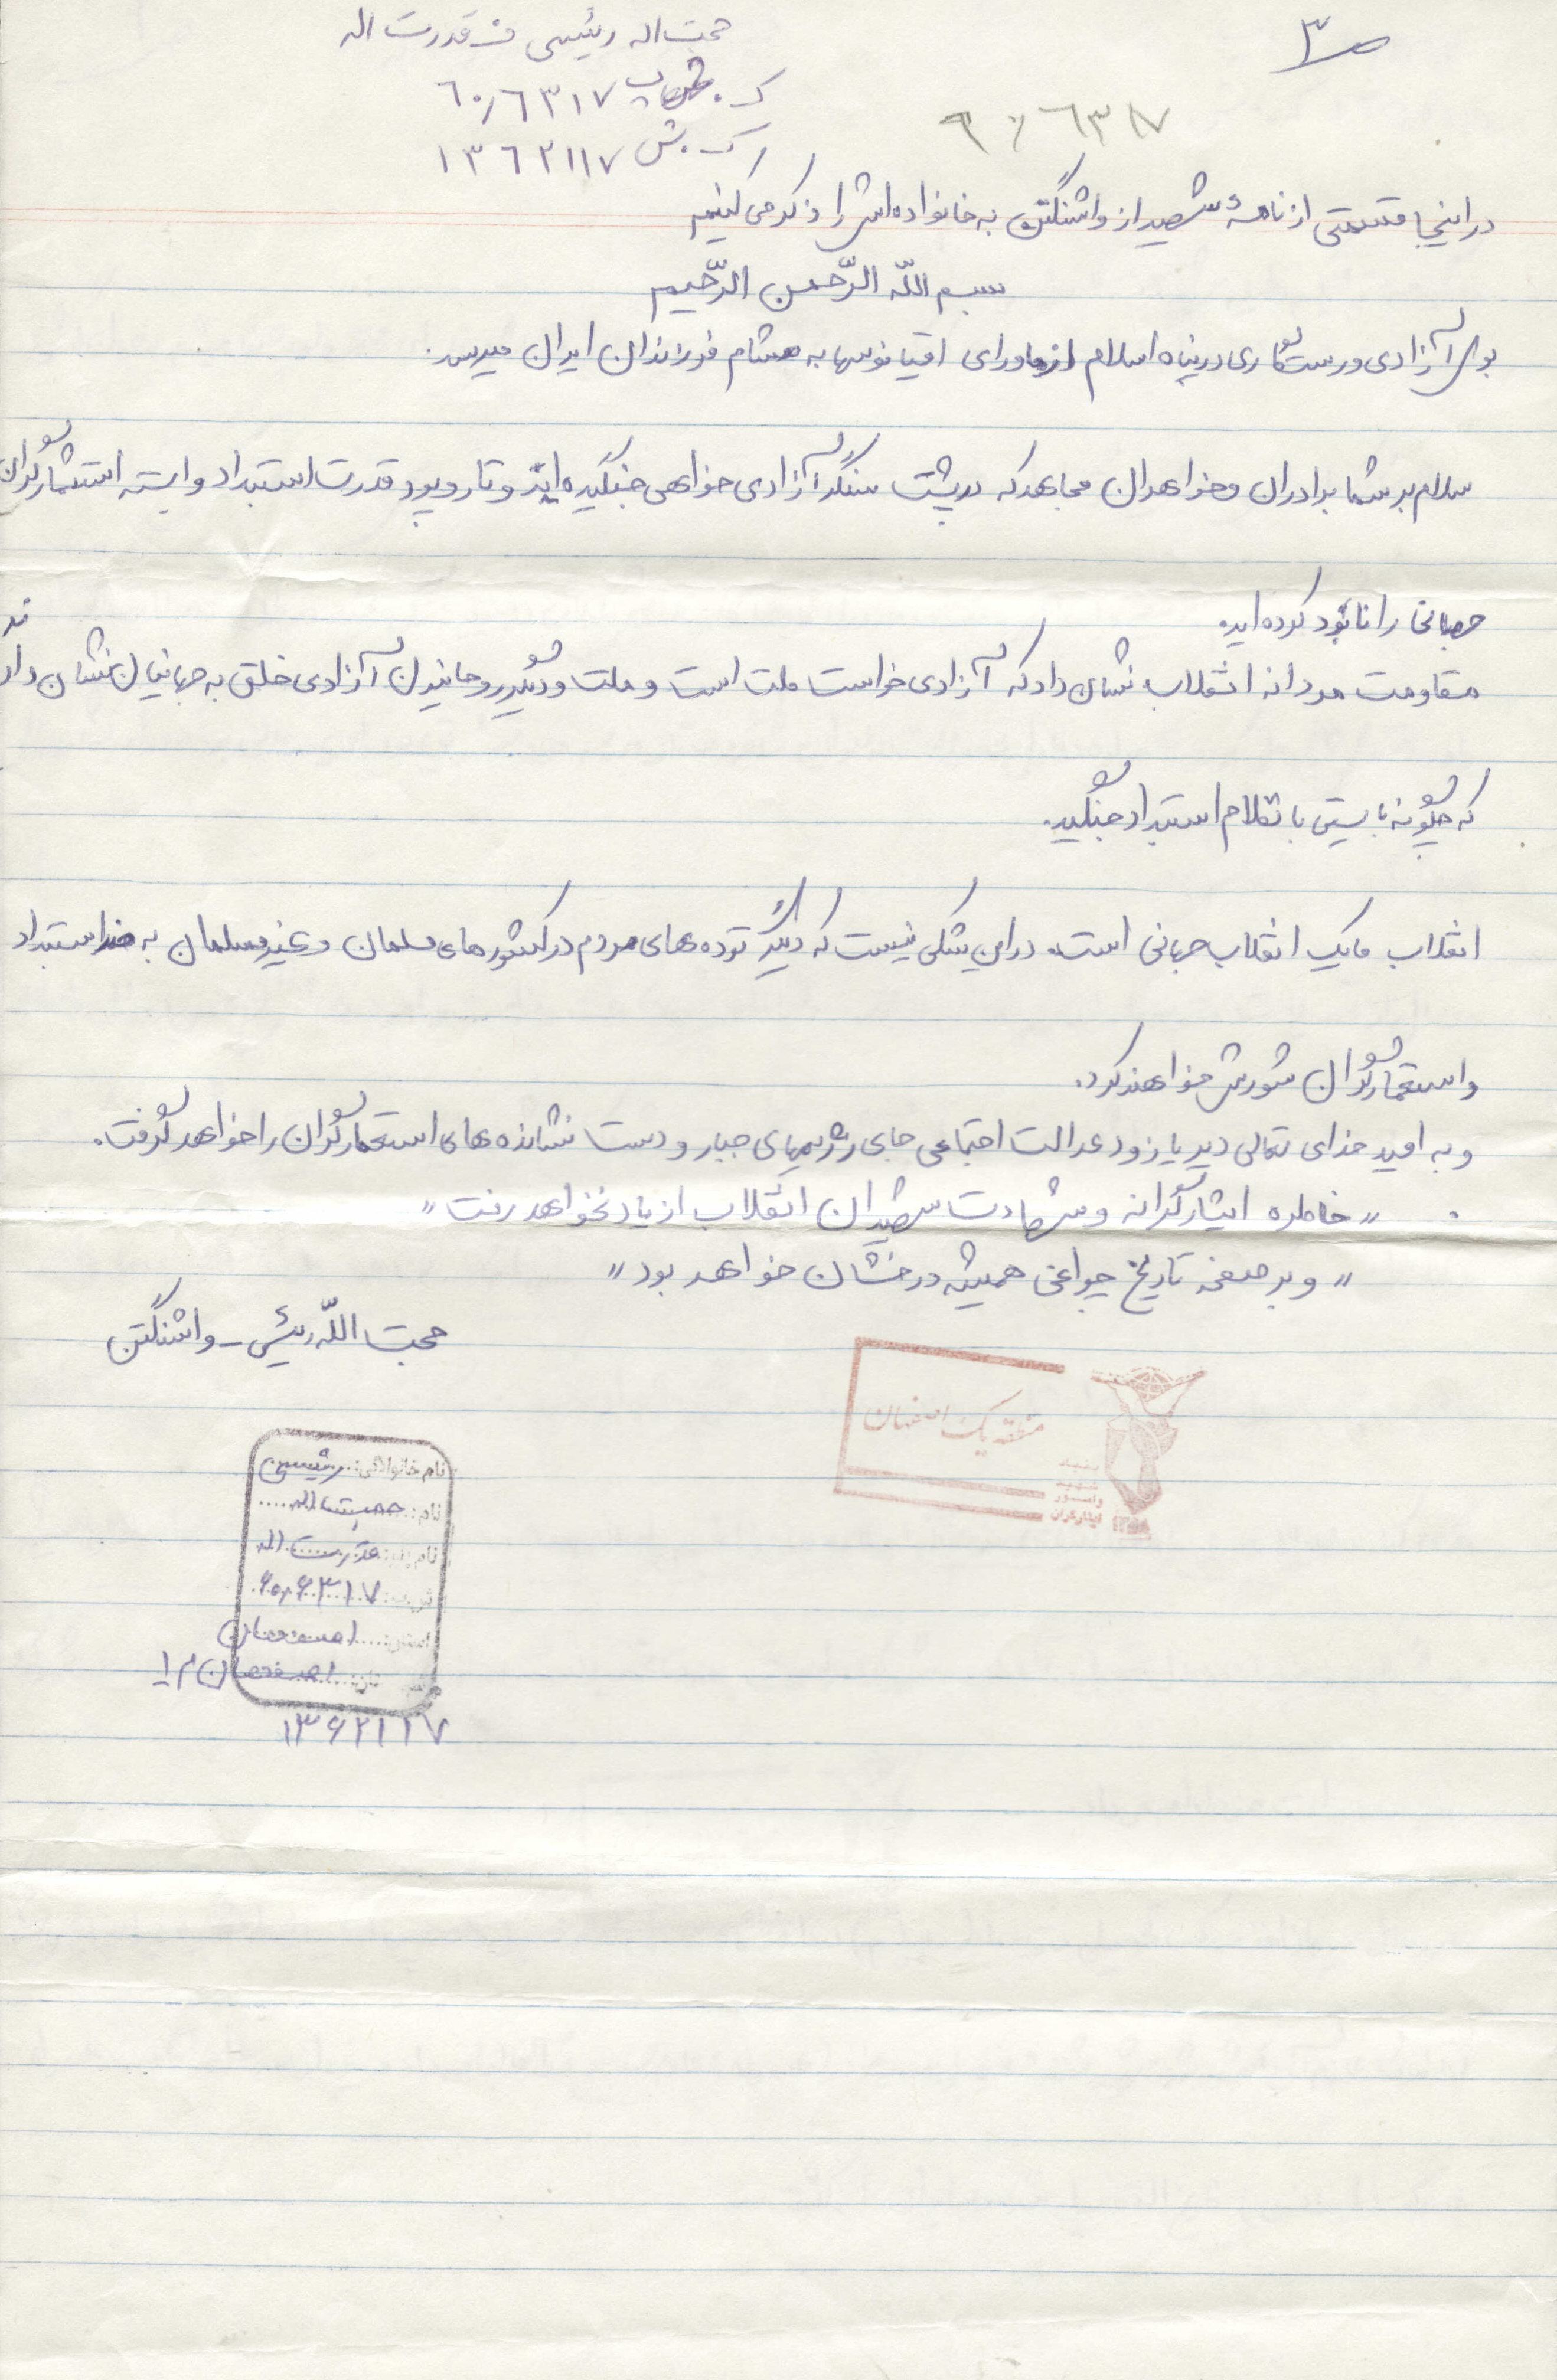 ص۳
محبت اله رئیسی ف قدرت اله
ک. ب ۶۰۶۳۱۷
ک. ش ۱۳۶۲۱۱۷
۶۰۶۳۱۷
در اینجا قسمتی از نامهٔ شهید از واشنگتن به خانواده اش را ذکر می کنیم
بسم اللّه الرّحمن الرّحیم
بوی آزادی و رستگاری در پناه اسلام از ماورای اقیانوسها به مشام فرزندان ایران میرسد.
سلام بر شما برادران و خواهران مجاهد که در پشت سنگر آزادی خواهی جنگیده اید و تار و پود قدرت استبداد وابسته استثمارگران
جهانی را نابود کرده اید.
مقاومت مردانه انقلاب نشان داد که آزادی خواست ملت است و ملت و رهبر روحانیون آزادی خلق به جهانیان نشان دادند
که چگونه بایستی با نظام استبداد جنگید.
انقلاب ما یک انقلاب جهانی است. در این شکی نیست که دیگر توده های مردم در کشورهای مسلمان و غیر مسلمان به ضد استبداد
و استعمارگران شورش خواهند کرد.
و به امید خدای تعالی دیر یا زود عدالت اجتماعی جای رژیمهای جبار و دست نشانده های استعمارگران را خواهد گرفت.
" خاطره ایثارگرانه و شهادت شهیدان انقلاب از یاد نخواهد رفت "
" و بر صفحه تاریخ چراغی همیشه درخشان خواهد بود "
محبت اللّه رئیسی - واشنگتن
منطقه یک اصفهان
بنیاد
شهید
و امور
ایثارگران
نام خانوادگی: رئیسی
نام: محبت اله
نام پدر: قدرت اله
۶۰۶۳۱۷
استان: اصفهان
اصفهان م ۱
۱۳۶۲۱۱۷